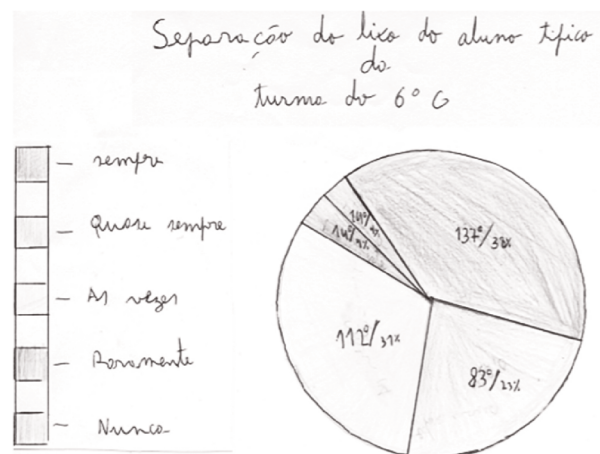 Separação do lixo do aluno tipico
da
turma do 6º G
— sempre
— Quase sempre
— As vezes
— Raramente
— Nunca
137º/38%
14º/4%
14º/4%
112º/31%
83º/23%